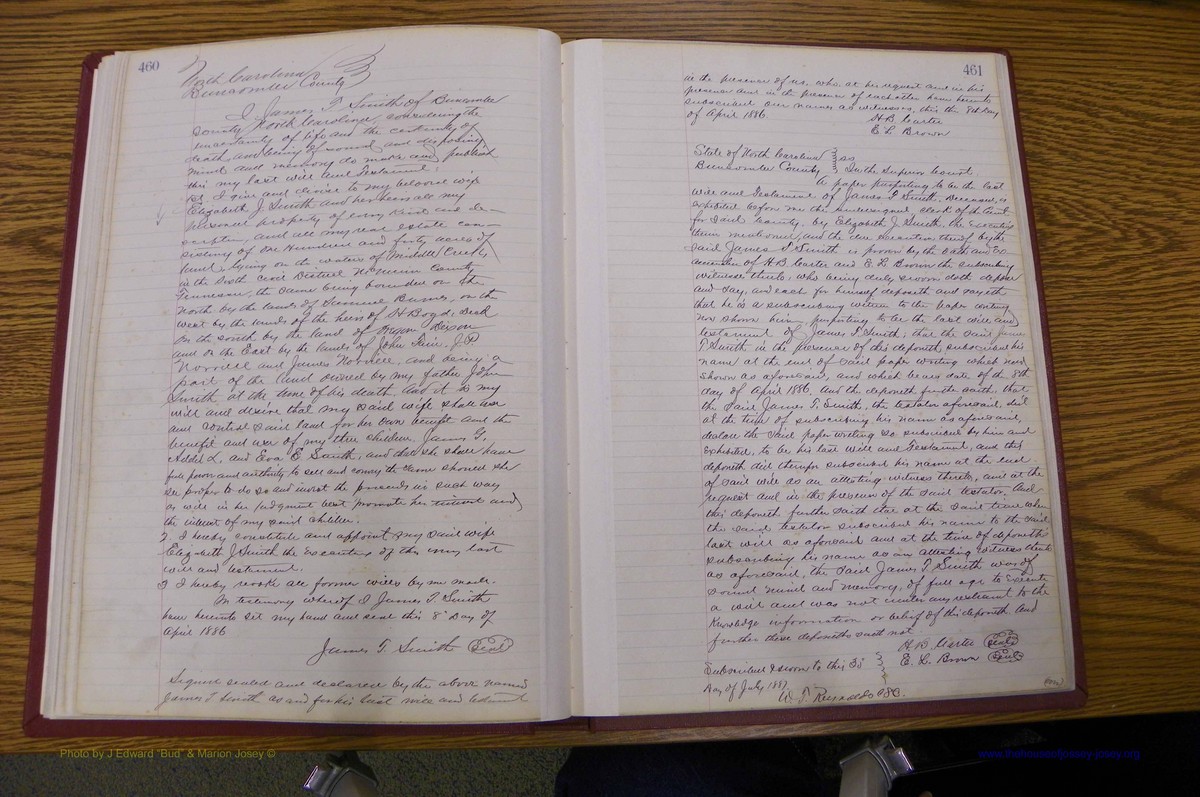 460
North Carolina
Buncombe County
I James T Smith of Buncombe
County North Carolina, considering the
uncertainty of life and the certainty of
death and being of sound and disposing
mind and memory do make and publish
this my last will and Testament:
1st I give and devise to my beloved wife
Elizabeth J Smith and her heirs all my
personal property of every kind and de-
scription, and all my real estate con-
sisting of One Hundred and forty acres of
land, lying on the waters of Middle Creek,
in the Sixth Civil District McMinn County
Tennessee, the same being bounded on the
North by the lands of Samuel Burns, on the
west by the lands of the heirs of H Boyd, Decd
on the south by the land of Dixon
and on the East by the lands of John Fair, J.P.
Norvell and James Norvell, and being a
part of the land owned by my father John
Smith at the time of his death, And it is my
will and desire that my said wife shall use
and control said land for her own benefit and the
benefit and use of my three children, James T,
Addie L, and Eva E Smith, and that she shall have
full power and authority to sell and convey the same should she
see proper to do so and invest the proceeds in such way
as will in her judgment best promote her interest and
the interest of my said children.
2. I hereby constitute and appoint my said wife
Elizabeth J Smith the Executrix of this my last
will and testament.
3 I hereby revoke all former wills by me made.
In testimony whereof I James T. Smith
have hereunto set my hand and seal this 8" Day of
April 1886
James T. Smith Seal
Signed sealed and declared by the above named
James T Smith as and for his last will and testament
461
in the presence of us, who at his request and in his
presence and in the presence of each other have hereunto
subscribed our names as witnesses, this the 8th day
of April 1886.
H B Carter
E L Brown
State of North Carolina
Buncombe County ss In the Superior Court.
A paper purporting to be the last
will and Testament of James T Smith, Deceased, is
exhibited before me the undersigned, clerk of the Court
for said county, by Elizabeth J Smith, the executrix
therein mentioned, and the due execution thereof by the
said James T Smith is proven by the oath and ex-
amination of H B Carter and E L Brown the subscribing
witnesses thereto; who being duly sworn, doth depose
and say, and each for himself deposeth and sayeth
that he is a subscribing witness to the paper writing
now shown him purporting to be the last will and
testament of James T Smith; that the said James
T Smith in the presence of this deponent, subscribed his
name at the end of said paper writing which now
shown as aforesaid, and which bears date of the 8th
day of April 1886, And the deponent further saith, that
the said James T. Smith, the testator aforesaid, did
at the time of subscribing his name as aforesaid,
declare the said paper writing so subscribed by him and
exhibited, to be his last will and Testament, and this
deponent did thereupon subscribe his name at the end
of said will as an attesting witness thereto, and at the
request and in the presence of the said testator. And
this deponent further saith that at the said time when
the said testator subscribed his name to the said
last will as aforesaid and at the time of deponents
subscribing his name as an attesting witness thereto
as aforesaid, the said James T. Smith was of
sound mind and memory, of full age to execute
a will and was not under any restraint to the
knowledge information or belief of this deponent. And
further these deponents saith not
H. B. Carter Seal
E. L. Brown Seal
Subscribed & sworn to this
Day of July 1887
W. T. Reynolds CSC.
Photo by J Edward "Bud" & Marion Josey ©
www.thehouseofjossey-josey.org